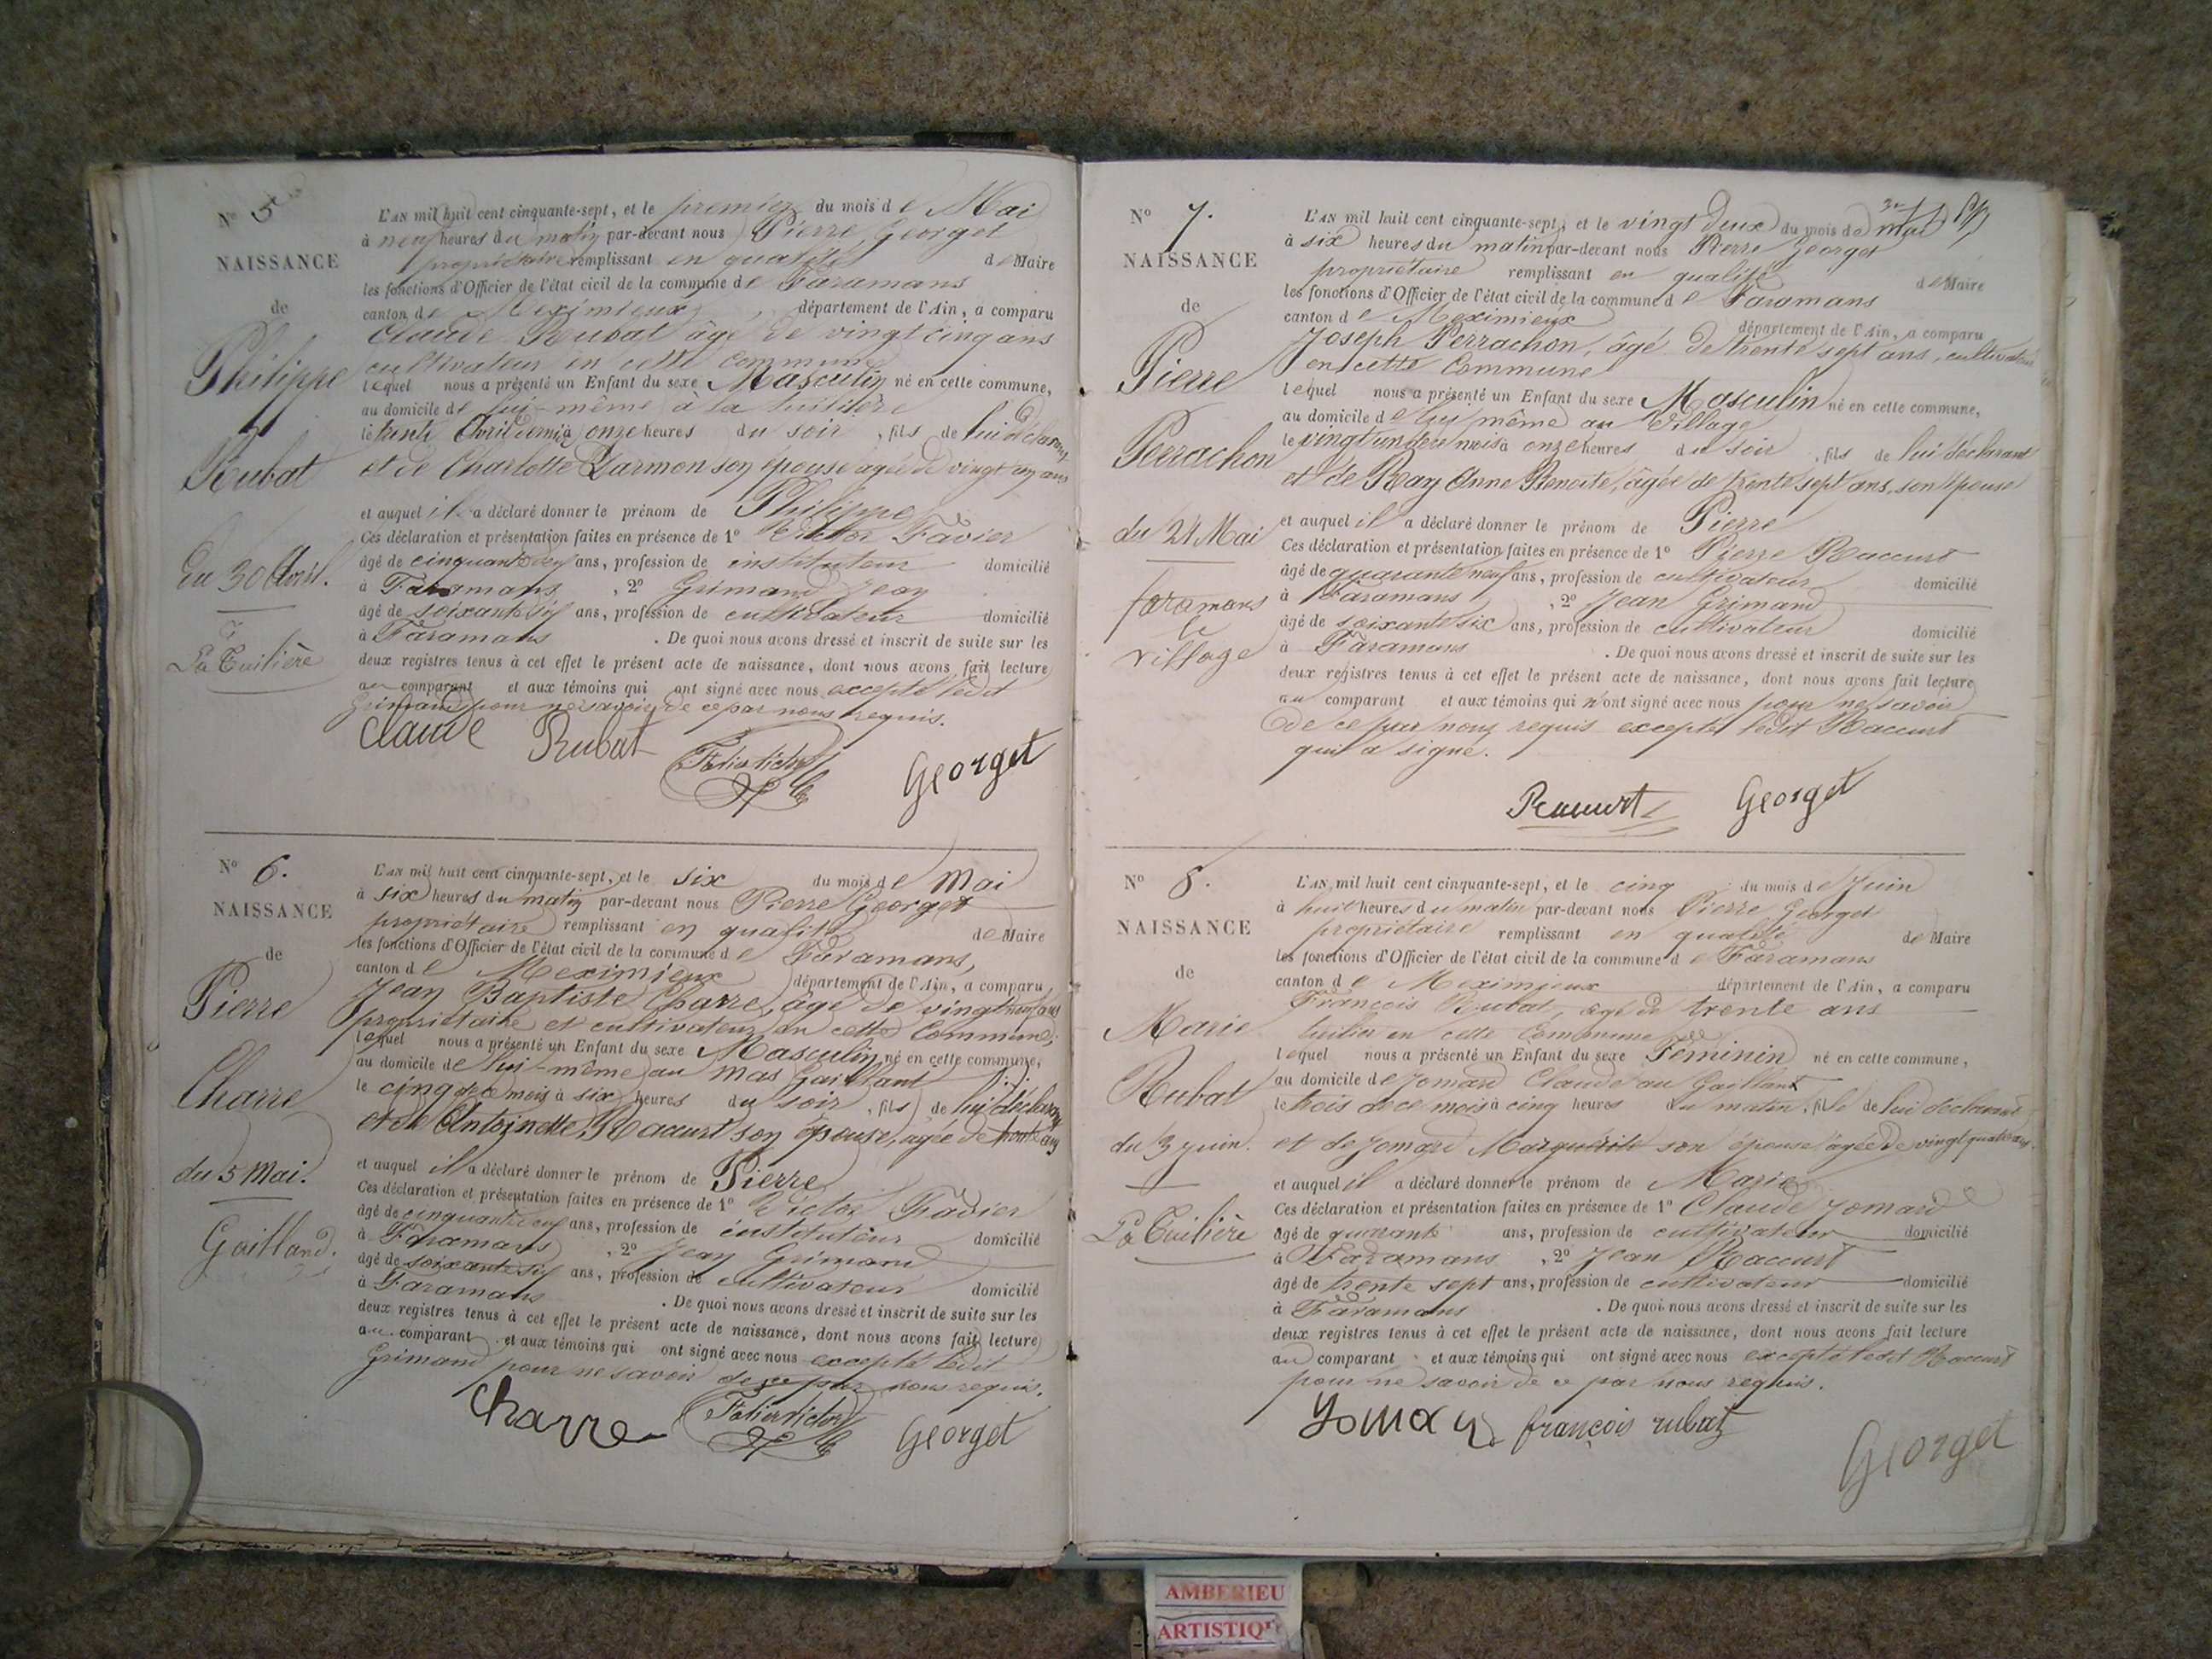 N° 5
NAISSANCE
de
Philippe
Rubat
du 30 Avril.
La Tuilière
L'AN mil huit cent cinquante-sept, et le premier du mois de Mai
à neuf heures du matin par-devant nous Pierre Georget
propriétaire remplissant en qualité de Maire
les fonctions d'Officier de l'état civil de la commune de Faramans
canton de Meximieux, département de l'Ain, a comparu
Claude Rubat âgé de vingt cinq ans
cultivateur en cette commune
lequel nous a présenté un Enfant du sexe Masculin né en cette commune,
au domicile de lui-même à la tuilière
le trente Avril dernier à onze heures du soir, fils de lui déclarant
et de Charlotte Darmon son épouse âgée de vingt ans
et auquel il a déclaré donner le prénom de Philippe
Ces déclaration et présentation faites en présence de 1° Victor Favier
âgé de cinquante ans, profession de instituteur domicilié
à Faramans, 2° Grimand Jean
âgé de soixante six ans, profession de cultivateur domicilié
à Faramans. De quoi nous avons dressé et inscrit de suite sur les
deux registres tenus à cet effet le présent acte de naissance, dont nous avons fait lecture
au comparant et aux témoins qui ont signé avec nous excepté ledit
Grimand pour ne savoir de ce par nous requis.
Claude Rubat Georget
N° 6.
NAISSANCE
de
Pierre
Charre
du 5 Mai.
Gailland.
L'AN mil huit cent cinquante-sept, et le six du mois de Mai
à six heures du matin par-devant nous Pierre Georget
propriétaire remplissant en qualité de Maire
les fonctions d'Officier de l'état civil de la commune de Faramans,
canton de Meximieux département de l'Ain, a comparu
Jean Baptiste Charre, âgé de vingt neuf ans
propriétaire et cultivateur en cette Commune
lequel nous a présenté un Enfant du sexe Masculin né en cette commune,
au domicile de lui-même au Mas Gailland
le cinq de ce mois à six heures du soir, fils de lui déclarant
et de Antoinette Racurt son épouse, âgée de trente ans
et auquel il a déclaré donner le prénom de Pierre
Ces déclaration et présentation faites en présence de 1° Victor Favier
âgé de cinquante ans, profession de instituteur domicilié
à Faramans, 2° Jean Grimand
âgé de soixante six ans, profession de cultivateur domicilié
à Faramans. De quoi nous avons dressé et inscrit de suite sur les
deux registres tenus à cet effet le présent acte de naissance, dont nous avons fait lecture
au comparant et aux témoins qui ont signé avec nous excepté ledit
Grimand pour ne savoir de ce par nous requis.
Charre Georget
N° 7.
NAISSANCE
de
Pierre
Perrachon
du 21 Mai
faramans
le
village
L'AN mil huit cent cinquante-sept, et le vingt deux du mois de mai
à six heures du matin par-devant nous Pierre Georget
propriétaire remplissant en qualité de Maire
les fonctions d'Officier de l'état civil de la commune de Faramans
canton de Meximieux département de l'Ain, a comparu
Joseph Perrachon, âgé de trente sept ans, cultivateur
en cette Commune
lequel nous a présenté un Enfant du sexe Masculin né en cette commune,
au domicile de lui même au Village
le vingt un de ce mois à onze heures du soir, fils de lui déclarant
et de Ray Anne Benoite, âgée de trente sept ans, son épouse
et auquel il a déclaré donner le prénom de Pierre
Ces déclaration et présentation faites en présence de 1° Pierre Racurt
âgé de quarante neuf ans, profession de cultivateur domicilié
à Faramans, 2° Jean Grimand
âgé de soixante six ans, profession de cultivateur domicilié
à Faramans. De quoi nous avons dressé et inscrit de suite sur les
deux registres tenus à cet effet le présent acte de naissance, dont nous avons fait lecture
au comparant et aux témoins qui n'ont signé avec nous pour ne savoir
de ce par nous requis excepté ledit Racurt
qui a signé.
Racurt Georget
N° 8.
NAISSANCE
de
Marie
Rubat
du 3 juin.
La Tuilière
L'AN mil huit cent cinquante-sept, et le cinq du mois de Juin
à huit heures du matin par-devant nous Pierre Georget
propriétaire remplissant en qualité de Maire
les fonctions d'Officier de l'état civil de la commune de Faramans
canton de Meximieux département de l'Ain, a comparu
François Rubat, âgé de trente ans
tuilier en cette Commune
lequel nous a présenté un Enfant du sexe Féminin né en cette commune,
au domicile de Jomard Claude au Gailland
le trois de ce mois à cinq heures du matin, fille de lui déclarant
et de Jomard Marguerite son épouse âgée de vingt quatre ans.
et auquel il a déclaré donner le prénom de Marie
Ces déclaration et présentation faites en présence de 1° Claude Jomard
âgé de quarante ans, profession de cultivateur domicilié
à Faramans, 2° Jean Racurt
âgé de trente sept ans, profession de cultivateur domicilié
à Faramans. De quoi nous avons dressé et inscrit de suite sur les
deux registres tenus à cet effet le présent acte de naissance, dont nous avons fait lecture
au comparant et aux témoins qui ont signé avec nous excepté ledit Racurt
pour ne savoir de ce par nous requis.
Jomard françois rubat
Georget
AMBERIEU
ARTISTIQ